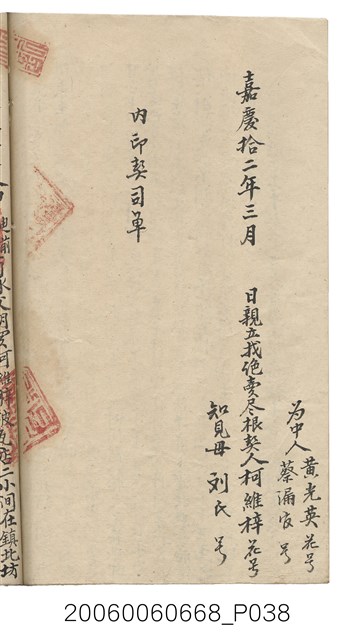 為中人黃光英花号
蔡漏官号
知見母刘氏号
嘉慶拾二年三月 日親立找绝賣尽根契人柯維梓花号
内印契司单
二小間在鎮北坊
20060060668_P038